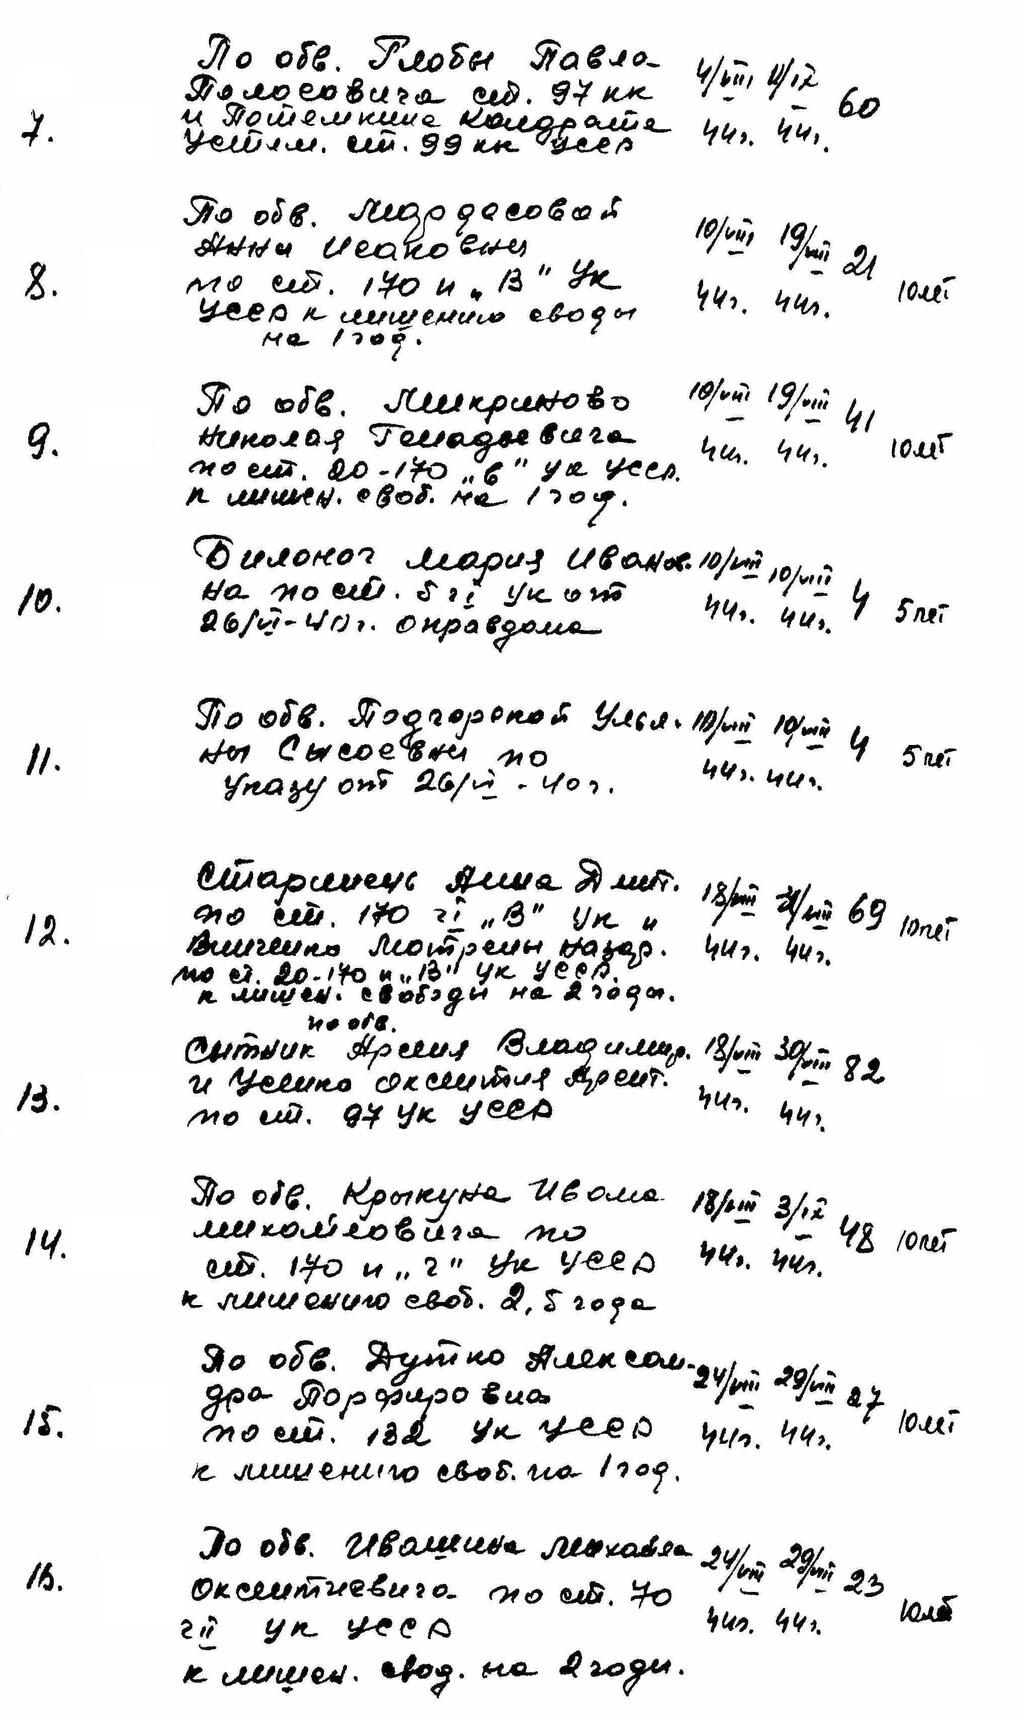 7.
По обв. Глобы Павла
Поласовича ст. 97 кк
и Потемкина Кандрата
Устим. ст. 99 кк УССР
4/VIII 11/IX 60
44г. 44г.
8.
По обв. Мордасовой
Анны Исаковны
по ст. 170 и „В" Ук
УССР к лишению своды
на 1 год.
10/VIII 19/VIII 21 10 лет
44г. 44г.
9.
По обв. Микриново
Николая Генадьевича
по ст. 20-170 „б" ук УССР.
к лишен. своб. на 1 год.
10/VIII 19/VIII 41 10 лет
44г. 44г.
10.
Билоног Мария Иванов.
на по ст. 5 ч I Ук от
26/VI-40г. оправдана
10/VIII 10/VIII 4 5 лет
44г. 44г.
11.
По обв. Подгорской Улья-
ны Сысоевны по
Указу от 26/VI - 40г.
10/VIII 10/VIII 4 5 лет
44г. 44г.
12.
Старинець Анна Дмит.
по ст. 170 ч I „В" Ук и
Винченко Мотрены Назар.
по ст. 20-170 и „В" Ук УССР.
к лишен. свободы на 2 годы.
18/VIII 69 10 лет
44г. 44г.
13.
по обв.
Сытник Владимир.
и Усенко Оксентия
по ст. 97 Ук УССР
18/VIII 30/VIII 82
44г. 44г.
14.
По обв. Крыкуна Ивана
Михайловича по
ст. 170 и „г" Ук УССР
к лишению своб. 2,5 года
18/VIII 3/IX 48 10 лет
44г. 44г.
15.
По обв. Дутко Алексан-
дра Порфировна
по ст. 132 Ук УССР
к лишению своб. на 1 год.
24/VIII 29/VIII 27 10 лет
44г. 44г.
16.
По обв. Ивашина Михаила
Оксентиевича по ст. 70
ч II Ук УССР
к лишен. свод. на 2 годи.
24/VIII 29/VIII 23 10 лет
44г. 44г.